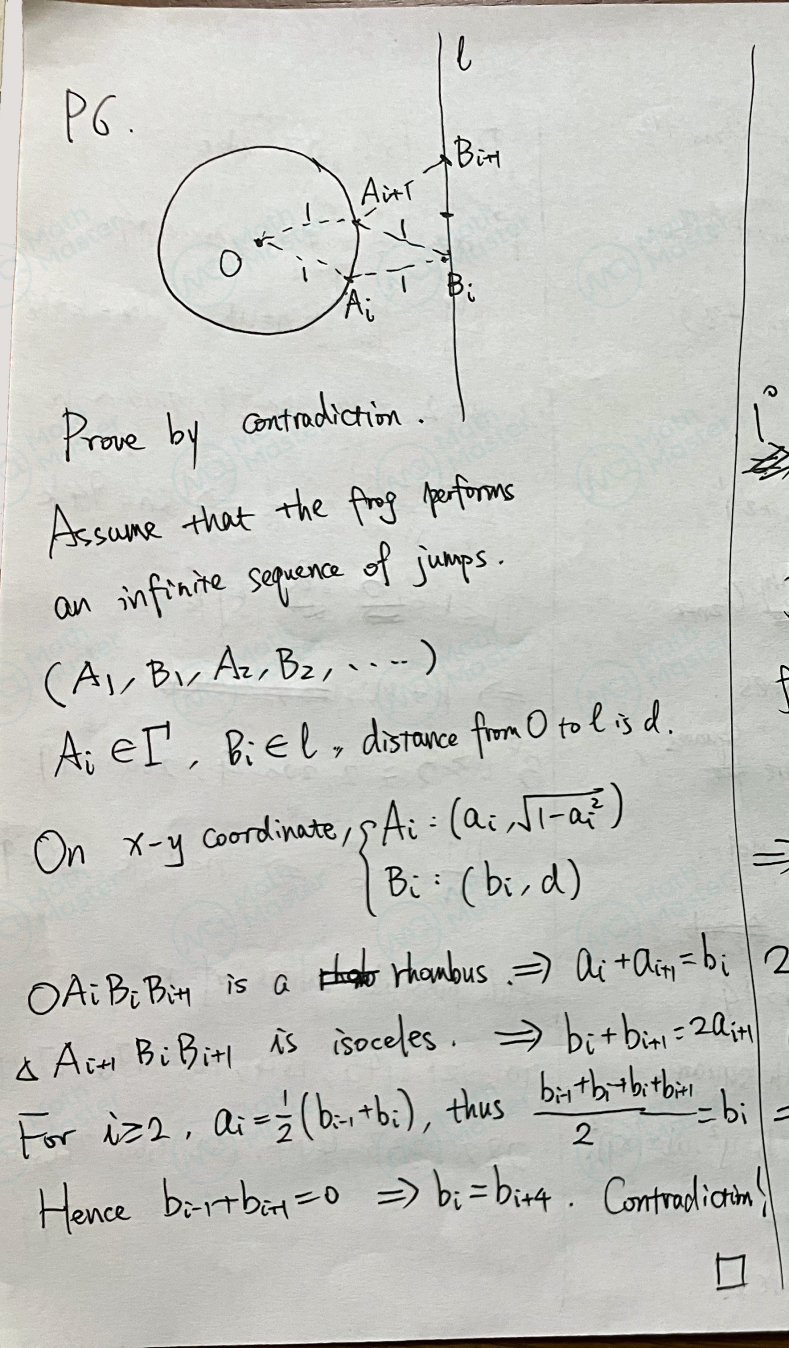 P6.
l
B_{i+1}
A_{i+1}
1
1
O
1
1
A_i
B_i
Prove by contradiction.
Assume that the frog performs
an infinite sequence of jumps.
(A_1, B_1, A_2, B_2, ....)
A_i ∈ Γ, B_i ∈ l, distance from O to l is d.
On x-y coordinate, { A_i : (a_i, √(1-a_i^2))
B_i : (b_i, d)
OA_iB_iB_{i+1} is a rhombus. ⇒ a_i + a_{i+1} = b_i
△ A_{i+1} B_i B_{i+1} is isoceles. ⇒ b_i + b_{i+1} = 2a_{i+1}
For i ≥ 2, a_i = 1/2 (b_{i-1} + b_i), thus (b_{i-1} + b_i + b_i + b_{i+1})/2 = b_i
Hence b_{i-1} + b_{i+1} = 0 ⇒ b_i = b_{i+4}. Contradiction!
□